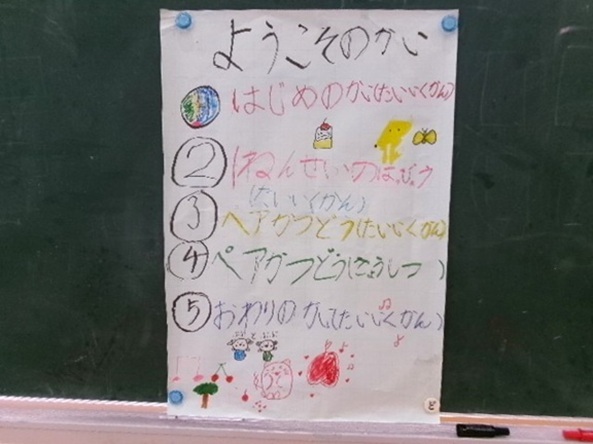 ようこそのかい
はじめのかい(たいいくかん)
② 1ねんせいのはっぴょう
(たいいくかん)
③ ペアかつどう(たいいくかん)
④ ペアかつどう(きょうしつ)
⑤ おわりのかい(たいいくかん)